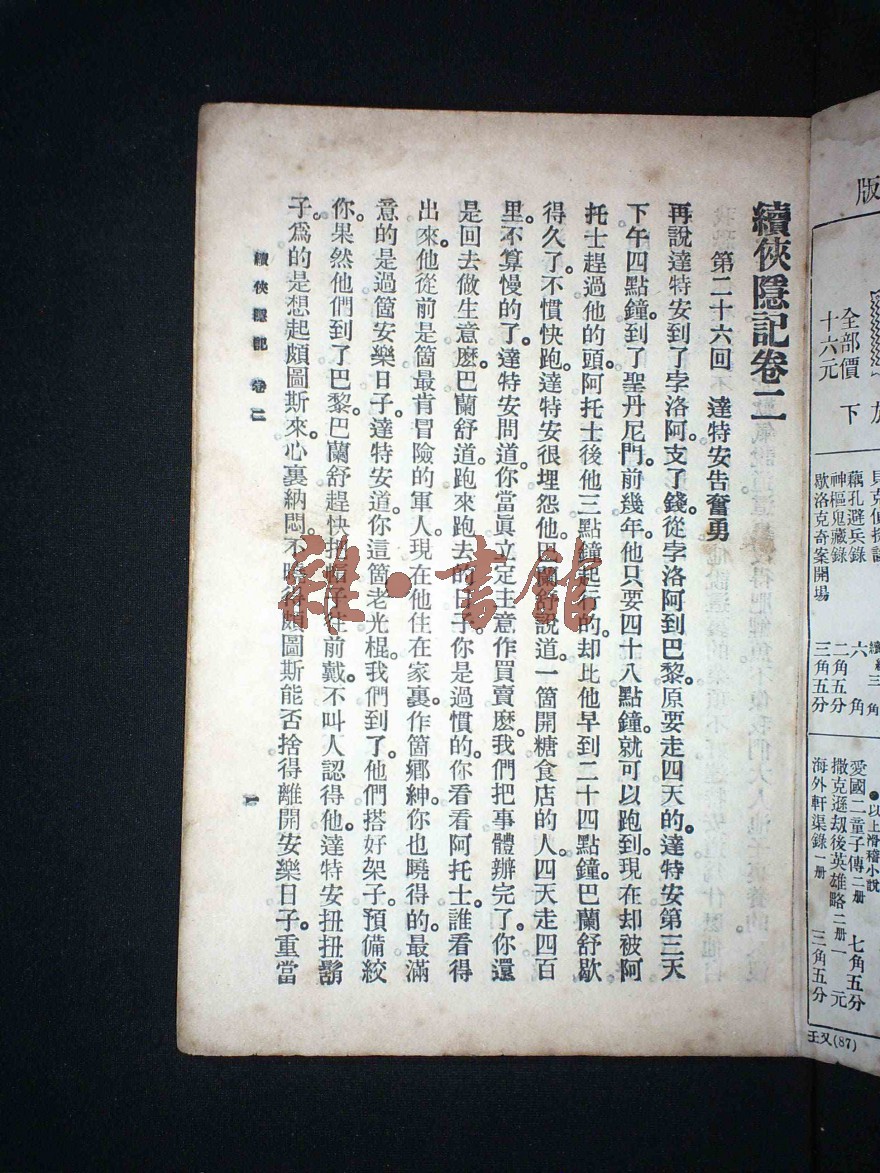 續俠隱記卷二
第二十六回 達特安告奮勇
再說達特安到了孛洛阿支了錢從孛洛阿到巴黎原要走四天的達特安第三天
下午四點鐘到了聖丹尼門前幾年他只要四十八點鐘就可以跑到現在却被阿
托士趕過他的頭阿托士後他三點鐘起行的却比他早到二十四點鐘巴蘭舒歇
得久了不慣快跑達特安很埋怨他巴蘭舒說道一箇開糖食店的人四天走四百
里不算慢的了達特安問道你當眞立定主意作買賣麽我們把事體辦完了你還
是回去做生意麽巴蘭舒道跑來跑去的日子你是過慣的你看看阿托士誰看得
出來他從前是箇最肯冒險的軍人現在他住在家裏作箇鄉紳你也曉得的最滿
意的是過箇安樂日子達特安道你這箇老光棍我們到了他們搭好架子預備絞
你果然他們到了巴黎巴蘭舒趕快把帽子往前戴不叫人認得他達特安扭扭鬍
子爲的是想起頗圖斯來心裏納悶不曉得頗圖斯能否捨得離開安樂日子重當
續俠隱記 卷二
一
雜·書館
版
全部價 下
十六元
藕孔避兵錄
神樞鬼藏錄
歇洛克奇案開場
六角
二角五分
三角五分
●以上滑稽小說
愛國二童子傳二册 七角五分
撒克遜劫後英雄略二册 一元
海外軒渠錄一册 三角五分
壬又(87)